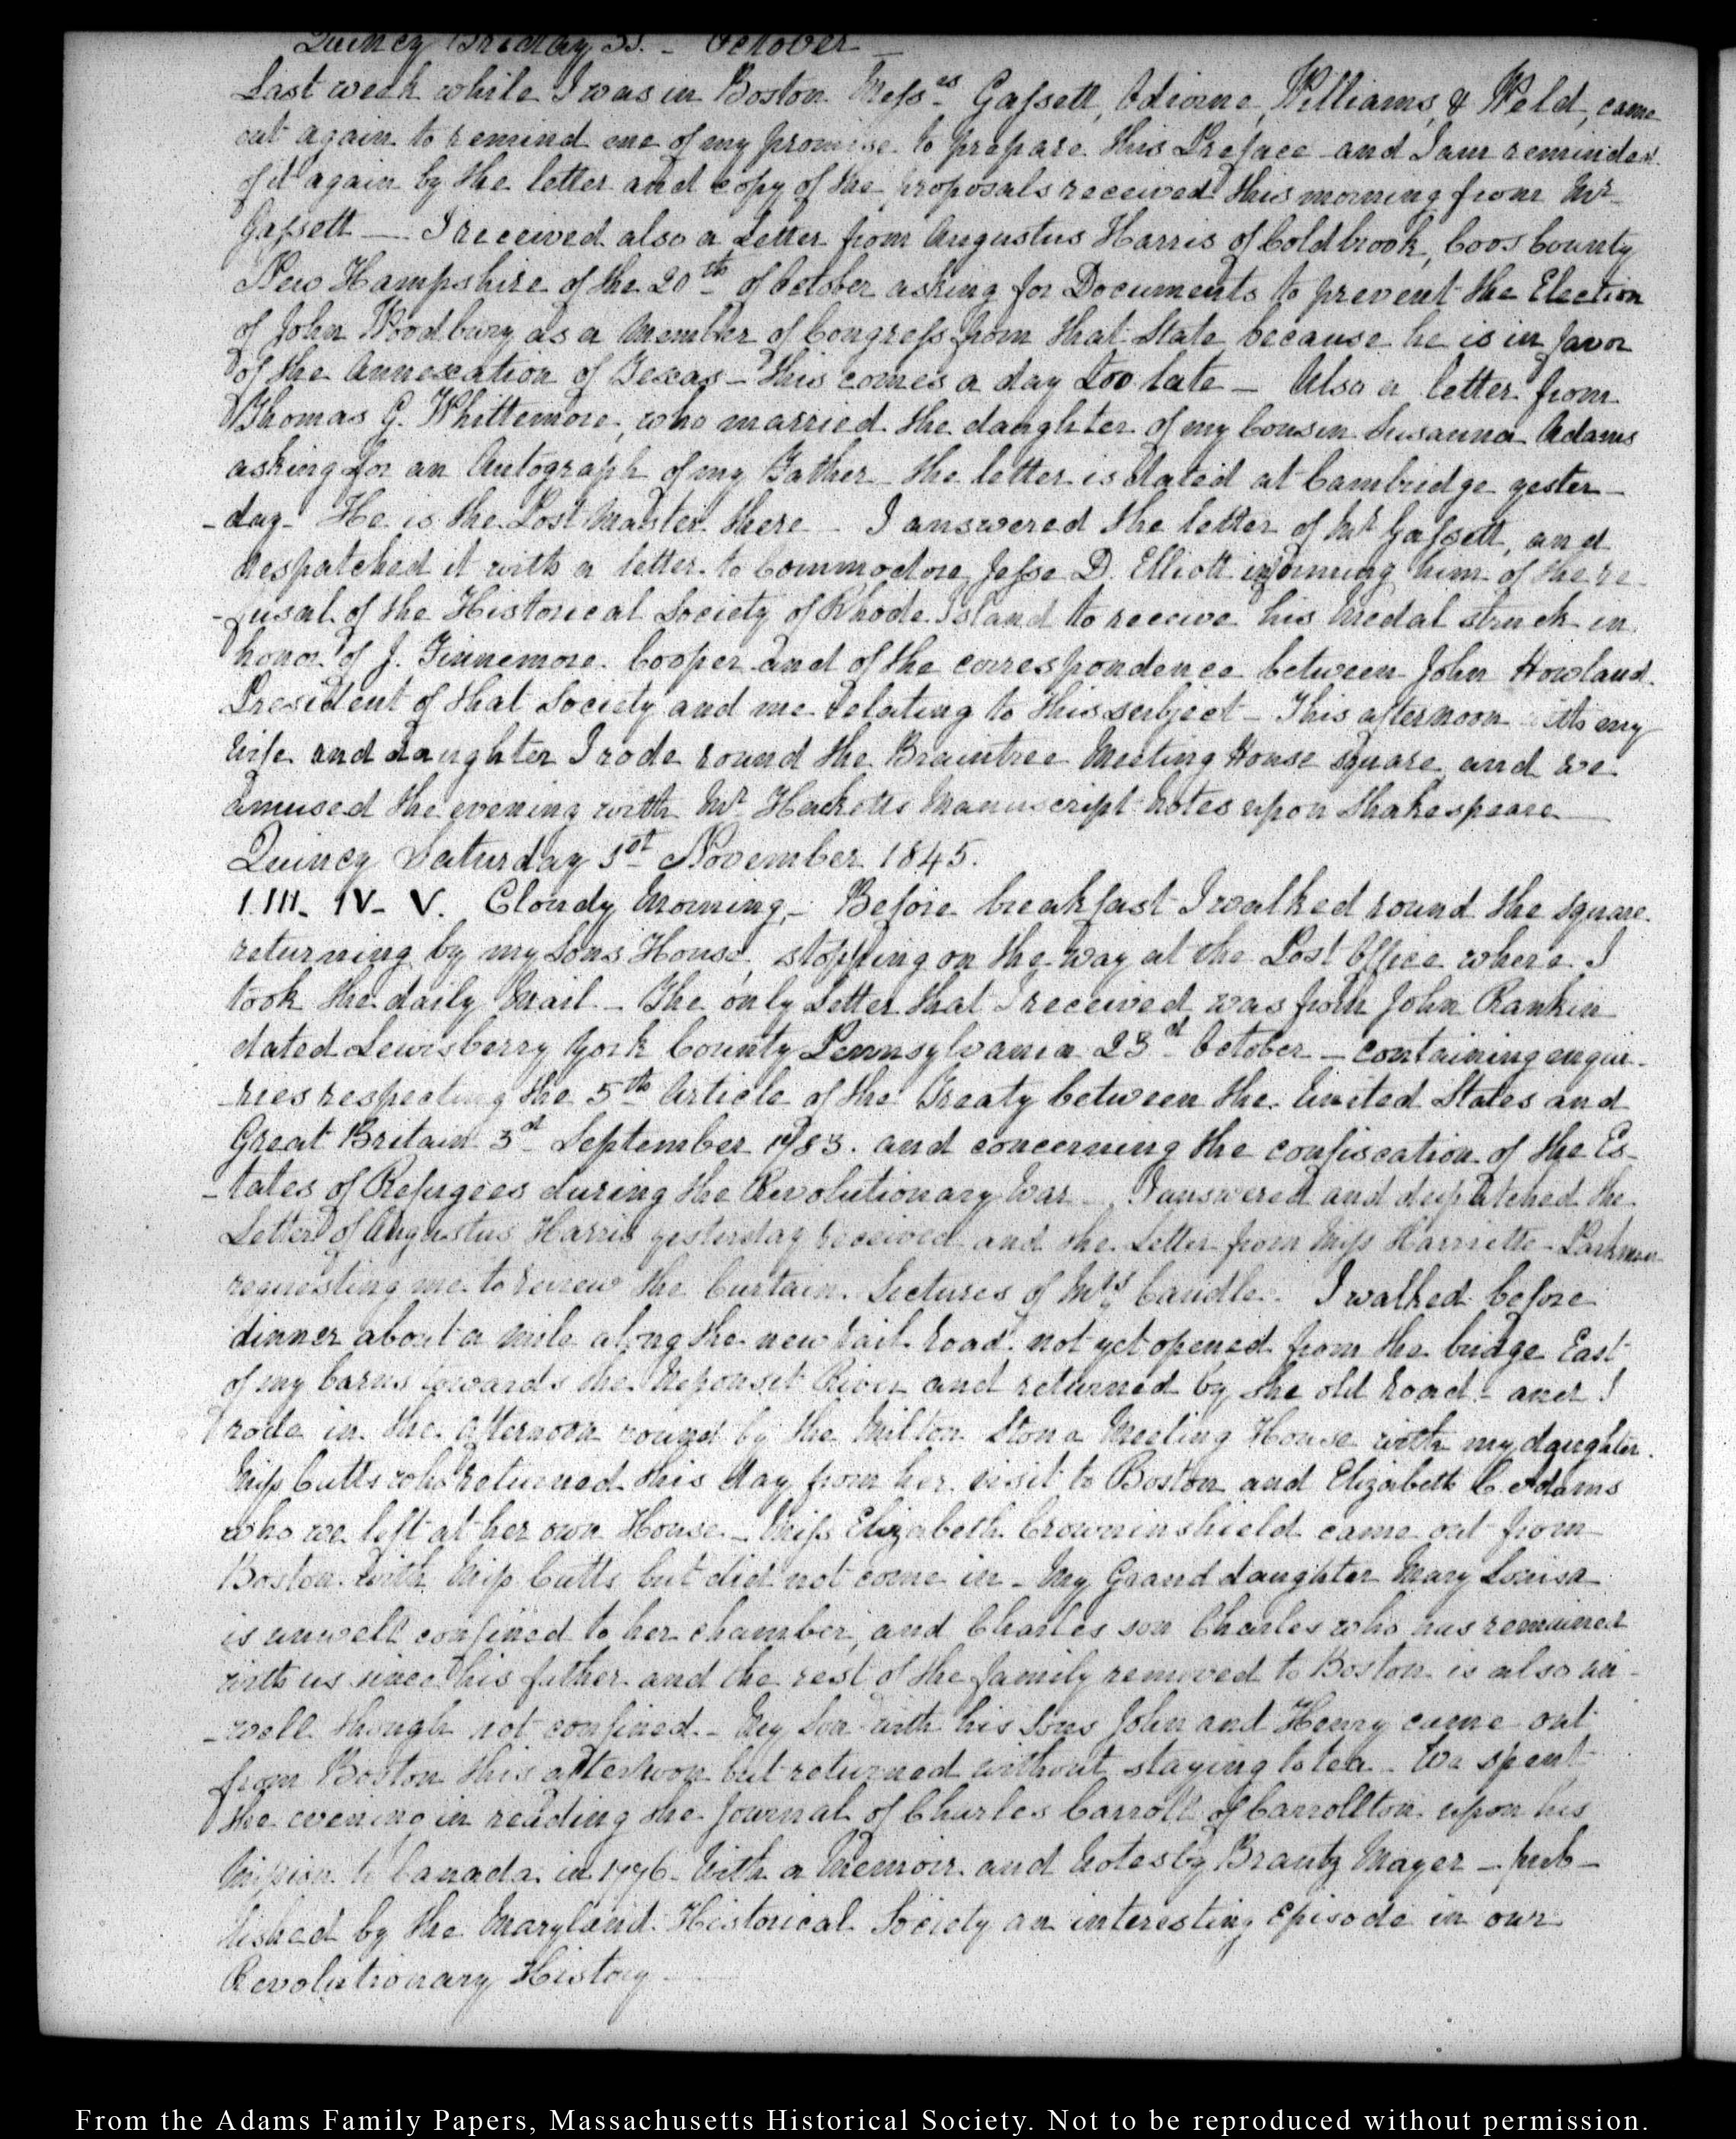 Quincy Friday 31. - October -
Last week while I was in Boston Messrs Gassett, Odiorne, Williams, & Weld, came
out again to remind me of my promise to prepare this Preface and I am reminded
of it again by the letter and copy of the proposals received this morning from Mr
Gassett — I received also a Letter from Augustus Harris of Coldbrook, Coos County
New Hampshire of the 20th of October asking for Documents to prevent the Election
of John Woodbury as a member of Congress from that State because he is in favor
of the Annexation of Texas - this comes a day too late - Also a letter from
Thomas G. Whittemore, who married the daughter of my Cousin Susanna Adams
asking for an Autograph of my Father - the letter is dated at Cambridge yester-
-day. He is the Post Master there - I answered the letter of Mr Gassett, and
despatched it with a letter to Commodore Jesse D. Elliott informing him of the re-
-fusal of the Historical Society of Rhode Island to receive his medal struck in
honor of J. Finnemore Cooper and of the correspondence between John Howland
President of that Society and me relating to this subject - This afternoon with my
Wife and daughter I rode round the Braintree Meeting House square and we
amused the evening with Mr Hacketts Manuscript notes upon Shakespeare —
Quincy Saturday 1st November 1845.
I. III. IV. V. Cloudy Morning, - Before breakfast I walked round the square
returning by my Sons House, stopping on the way at the Post Office where I
took the daily Mail - The only Letter that I received was from John Rankin
dated Lewisberry York County Pennsylvania 23d October - containing enqui-
-ries respecting the 5th Article of the Treaty between the United States and
Great Britain 3d September 1783. and concerning the confiscation of the Es-
-tates of Refugees during the Revolutionary War - I answered and despatched the
Letter of Augustus Harris yesterday received and the Letter from Miss Harriette Parkman
requesting me to review the Curtain Lectures of Mrs Caudle. I walked before
dinner about a mile along the new rail road not yet opened from the bridge East
of my barns towards the Neponset River and returned by the old road - and I
rode in the afternoon round by the Milton Stone Meeting House with my daughter
Miss Cutts who returned this day from her visit to Boston and Elizabeth C. Adams
who we left at her own House - Miss Elizabeth Crowninshield came out from
Boston with Miss Cutts but did not come in - My Grand daughter Mary Louisa
is unwell confined to her chamber, and Charles son Charles who has remained
with us since his father and the rest of the family removed to Boston is also un-
-well though not confined. - My Son with his Sons John and Henry came out
from Boston this afternoon but returned without staying to tea - We spent
the evening in reading the Journal of Charles Carroll of Carrollton upon his
Mission to Canada in 1776. With a Memoir and Notes by Brantz Mayer - pub-
lished by the Maryland Historical Society an interesting episode in our
Revolutionary History —
From the Adams Family Papers, Massachusetts Historical Society. Not to be reproduced without permission.